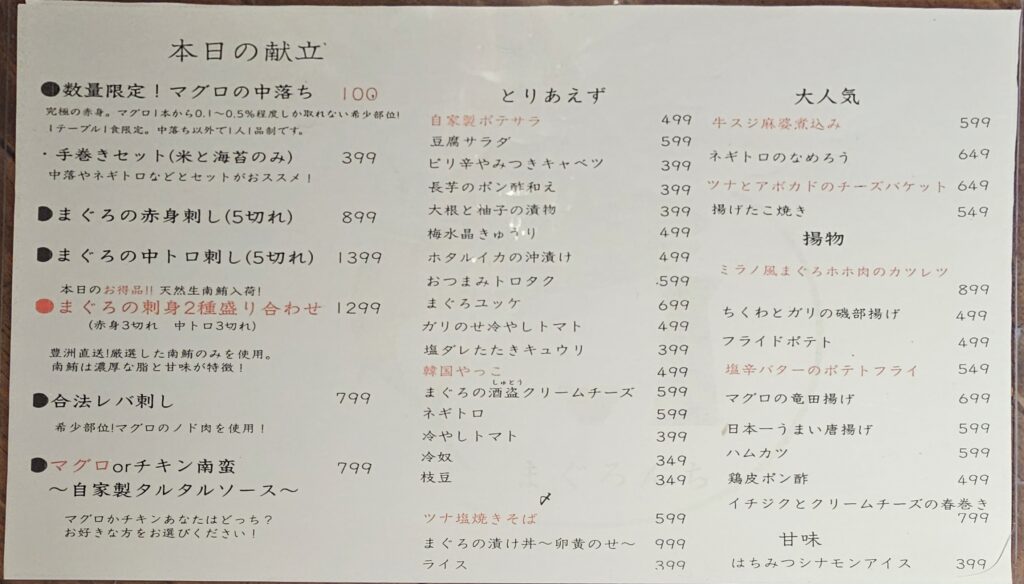 本日の献立
●数量限定！マグロの中落ち 100
究極の赤身。マグロ1本から0.1〜0.5%程度しか取れない希少部位!
1テーブル1食限定。中落ち以外で1人1品制です。
・手巻きセット(米と海苔のみ) 399
中落やネギトロなどとセットがおススメ！
●まぐろの赤身刺し(5切れ) 899
●まぐろの中トロ刺し(5切れ) 1399
本日のお得品!! 天然生南鮪入荷!
●まぐろの刺身2種盛り合わせ 1299
(赤身3切れ 中トロ3切れ)
豊洲直送!厳選した南鮪のみを使用。
南鮪は濃厚な脂と甘味が特徴！
●合法レバ刺し 799
希少部位!マグロのノド肉を使用！
●マグロorチキン南蛮 799
〜自家製タルタルソース〜
マグロかチキンあなたはどっち？
お好きな方をお選びください！
とりあえず
自家製ポテサラ 499
豆腐サラダ 599
ピリ辛やみつきキャベツ 399
長芋のポン酢和え 399
大根と柚子の漬物 399
梅水晶きゅうり 499
ホタルイカの沖漬け 499
おつまみトロタク 599
まぐろユッケ 699
ガリのせ冷やしトマト 499
塩ダレたたきキュウリ 399
韓国やっこ 499
しゅとう
まぐろの酒盗クリームチーズ 599
ネギトロ 599
冷やしトマト 399
冷奴 349
枝豆 349
〆
ツナ塩焼きそば 599
まぐろの漬け丼〜卵黄のせ〜 999
ライス 399
大人気
牛スジ麻婆煮込み 599
ネギトロのなめろう 649
ツナとアボカドのチーズバケット 649
揚げたこ焼き 549
揚物
ミラノ風まぐろホホ肉のカツレツ
899
ちくわとガリの磯部揚げ 499
フライドポテト 499
塩辛バターのポテトフライ 549
マグロの竜田揚げ 699
日本一うまい唐揚げ 599
ハムカツ 599
鶏皮ポン酢 499
イチジクとクリームチーズの春巻き
799
甘味
はちみつシナモンアイス 399